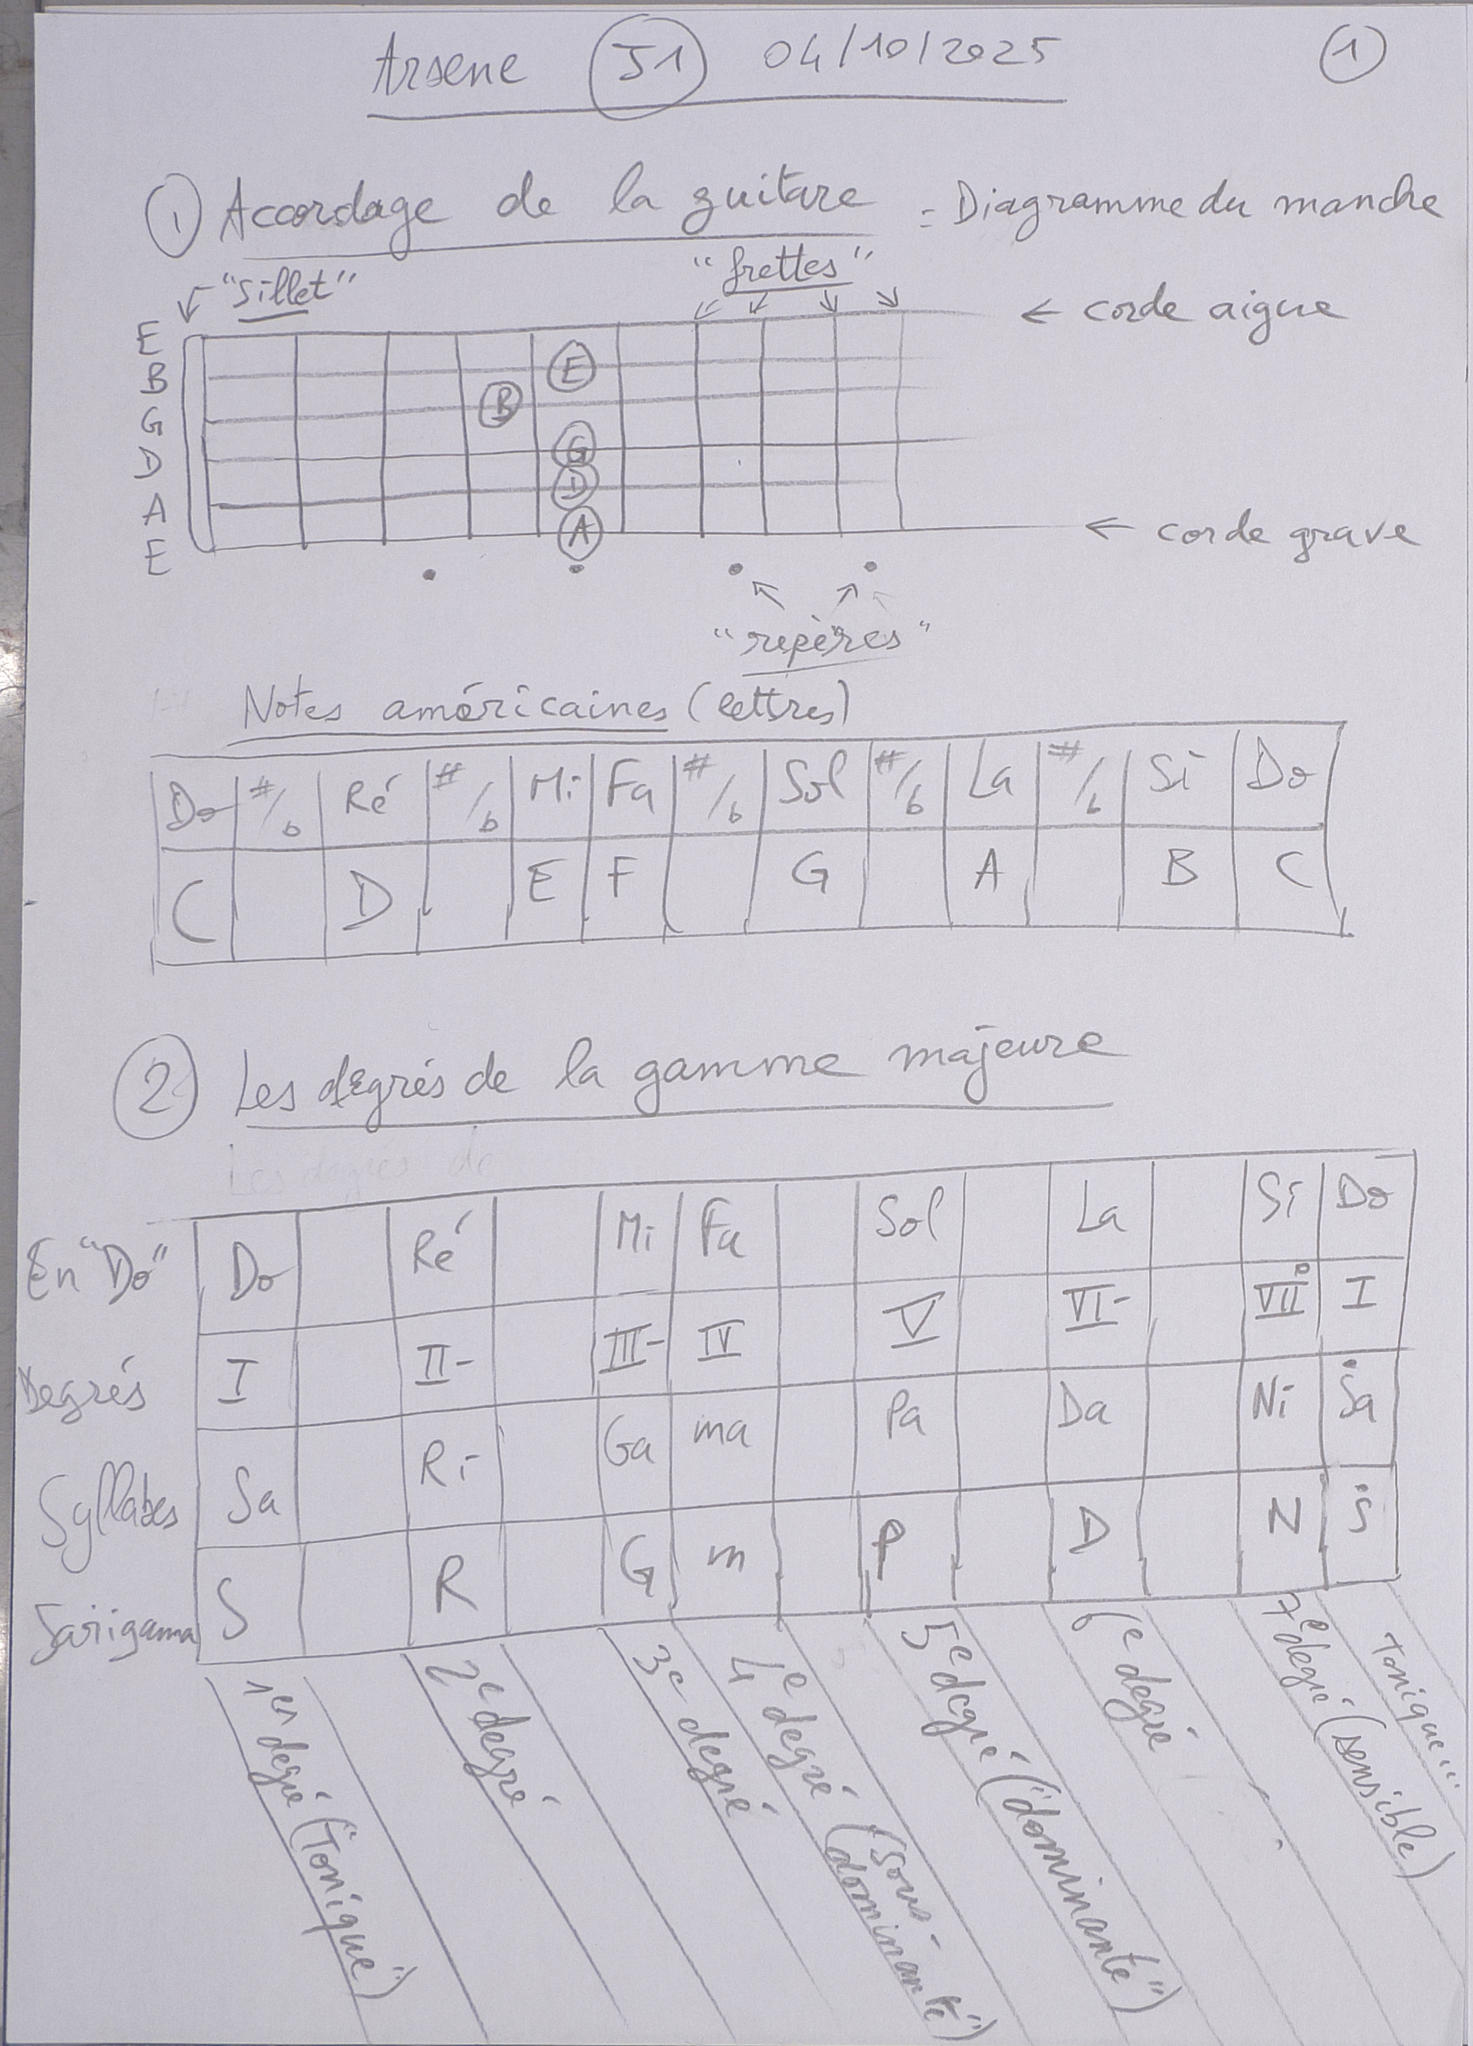 Arsene J1 04/10/2025 1
1 Accordage de la guitare = Diagramme du manche
"Sillet" "frettes"
← corde aigue
E
B E
G B
D G
A D
E A
← corde grave
"repères"
Notes américaines (lettres)
Do #/b Ré #/b Mi Fa #/b Sol #/b La #/b Si Do
C D E F G A B C
2 Les degrés de la gamme majeure
Les degrés de
En "Do" Do Ré Mi Fa Sol La Si Do
Degrés I II- III- IV V VI- VII° I
Syllabes Sa Ri Ga ma Pa Da Ni Ṡa
Sarigama S R G m P D N Ṡ
1er degré ("Tonique")
2e degré
3e degré
4e degré (sous-
dominante")
5e degré ("dominante")
6e degré
7e degré (sensible)
Tonique...